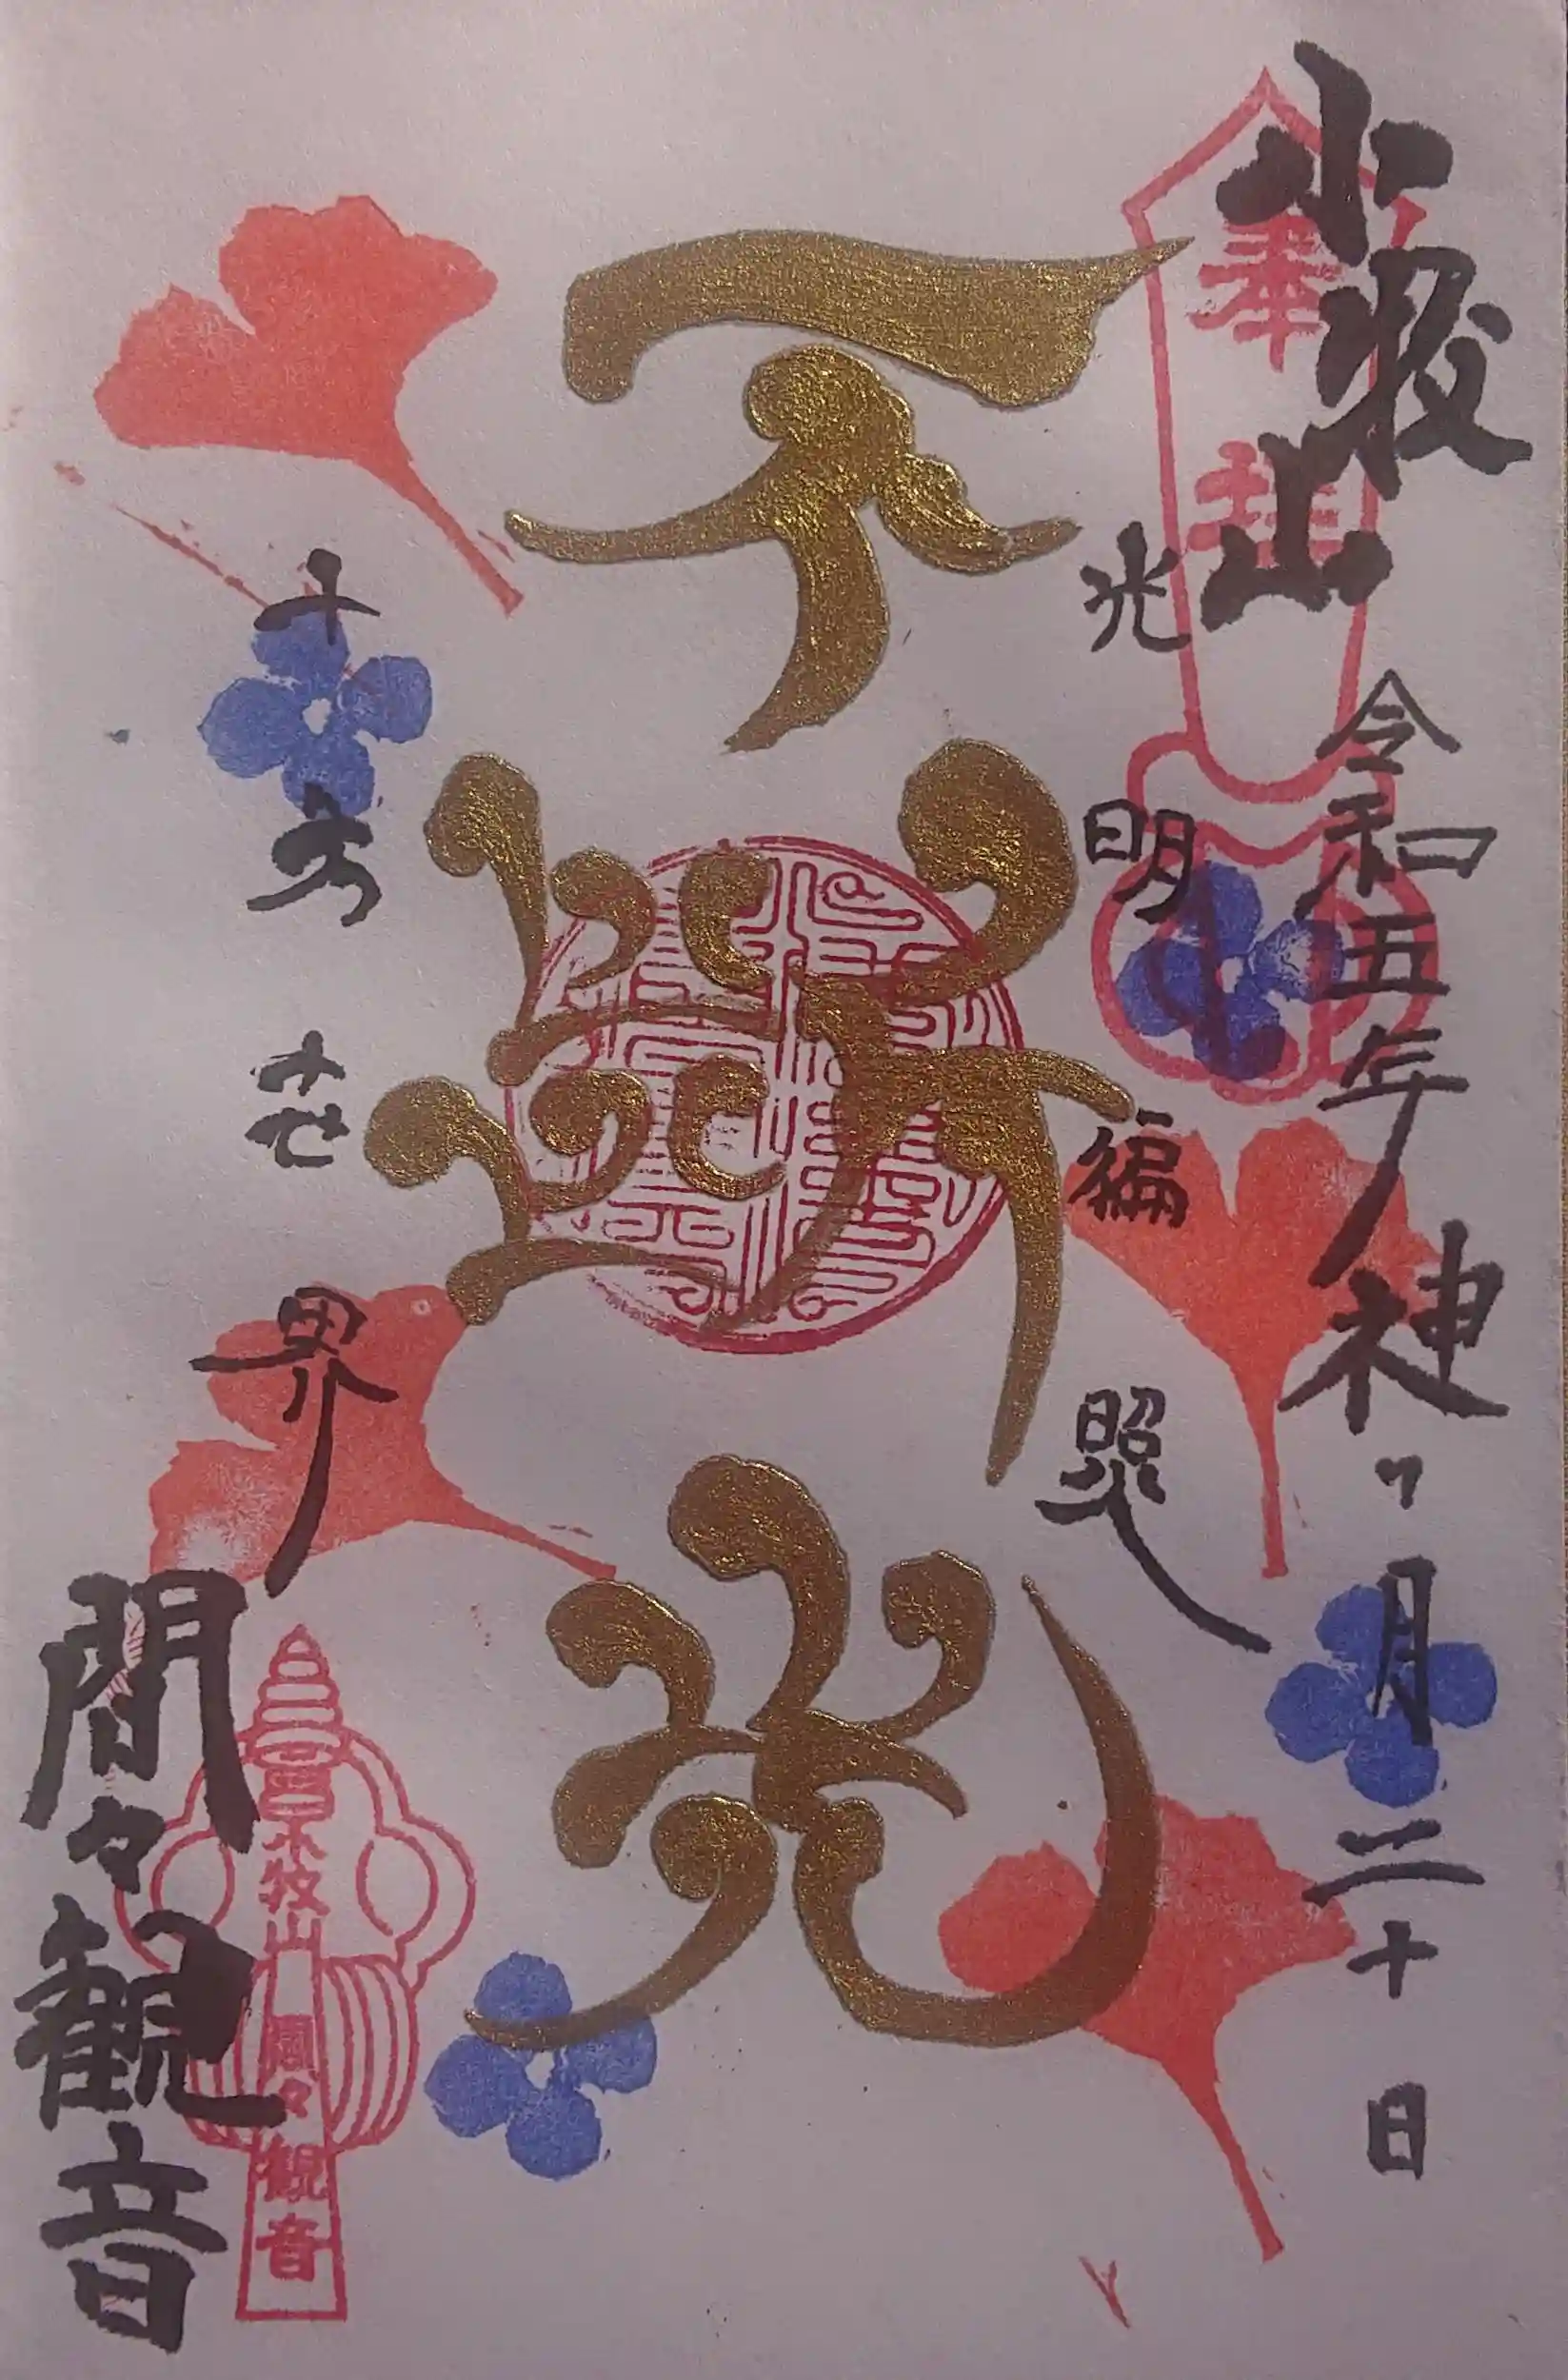 奉拝
小牧山
令和五年神々月二十日
光明編照
不斷光
十方世界
間々観音
小牧山
間々観音